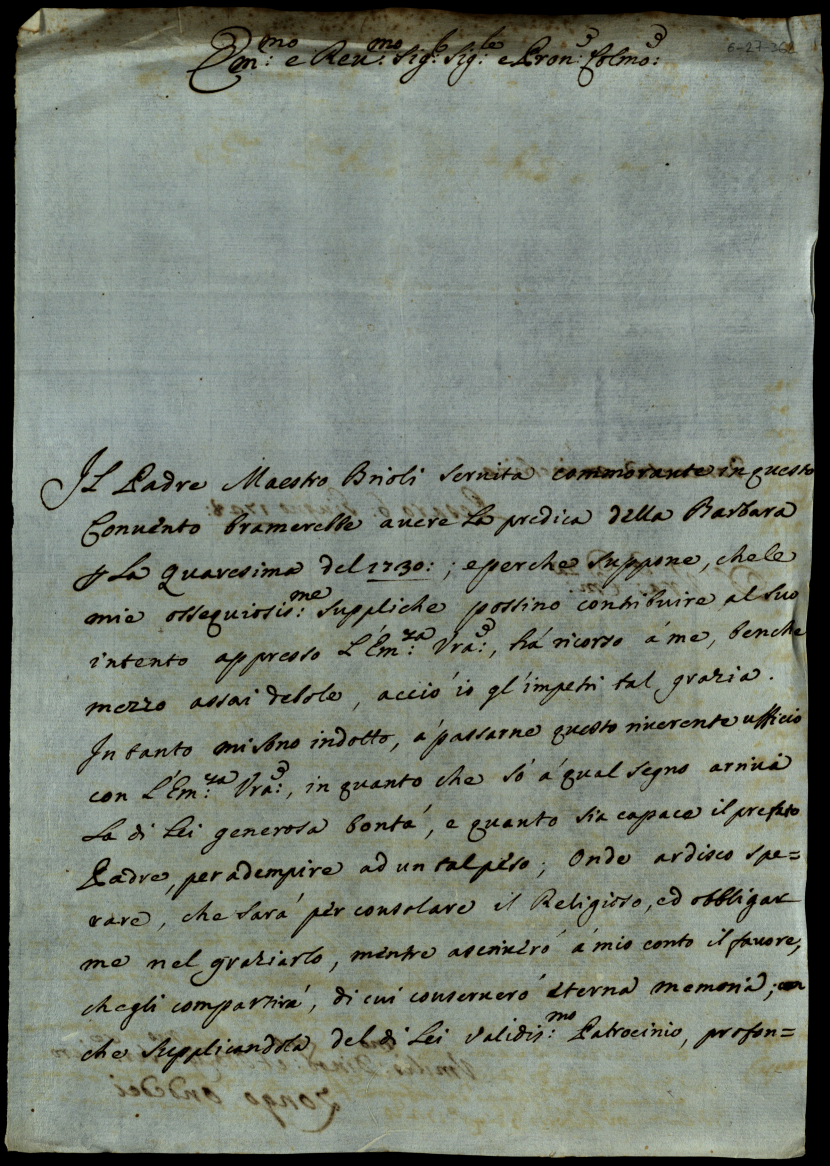 Em:mo e Reu:mo Sig:r Sig:re e Pron:e Colmo:
6-27-362
Il Padre Maestro Brioli seruita commorante in questo
Conuento bramerebbe auere la predica della Barbara
p la Quaresima del 1730:; e perche suppone, che le
mie ossequiosis:me suppliche possino contribuire al suo
intento appresso L'Em:za Vra:, há ricorso á me, benche
mezzo assai debole, acció io gl'impetri tal grazia.
In tanto mi sono indotto, á passarne questo riuerente ufficio
con L'Em:za Vra:, in quanto che só á qual segno arriua
la di Lei generosa bontá, e quanto sia capace il prefato
Padre, per adempire ad un tal peso; Onde ardisco spe=
rare, che sará per consolare il Religioso, ed obbligar
me nel graziarlo, mentre ascriueró á mio conto il fauore,
che gli compartirá, di cui conserueró eterna memoria;
che supplicandola del di Lei validis:mo Patrocinio, profon=